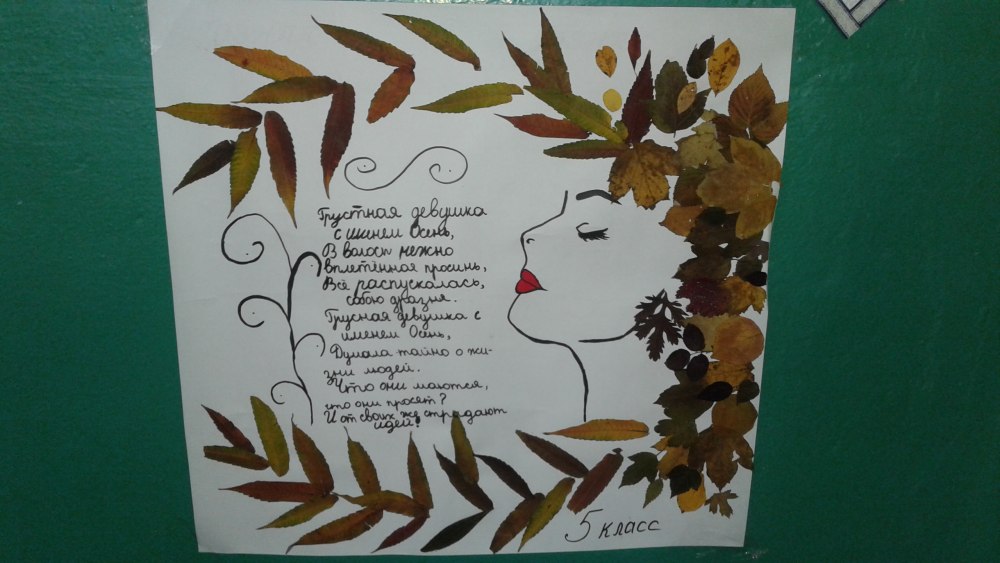 Грустная девушка
с именем Осень,
В волосы нежно
вплетённая просинь,
Всё распускалась,
собою дразня.
Грусная девушка с
именем Осень,
Думала тайно о жи-
зни людей.
Что они маются,
что они просят?
И от своих же страдают
идей!
5 класс